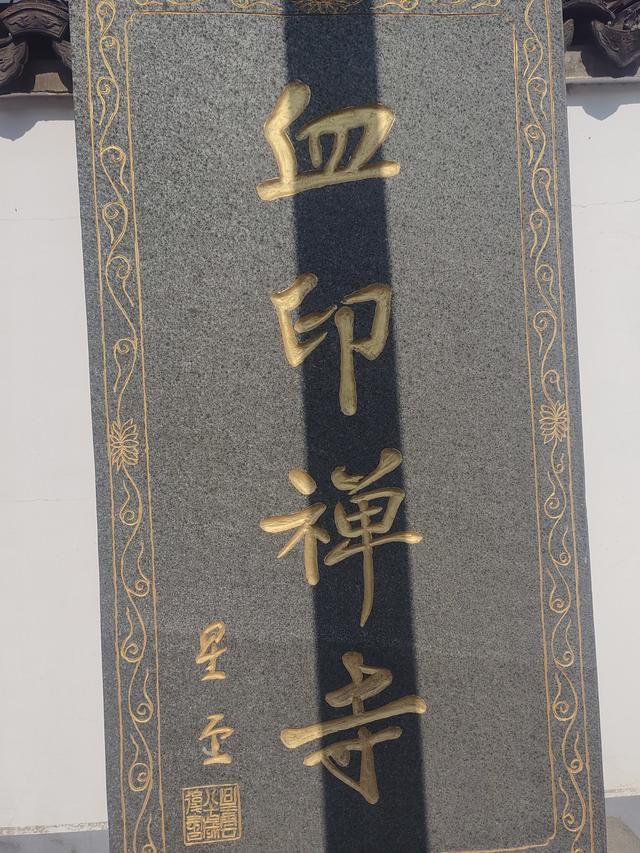 血印禅寺
星云